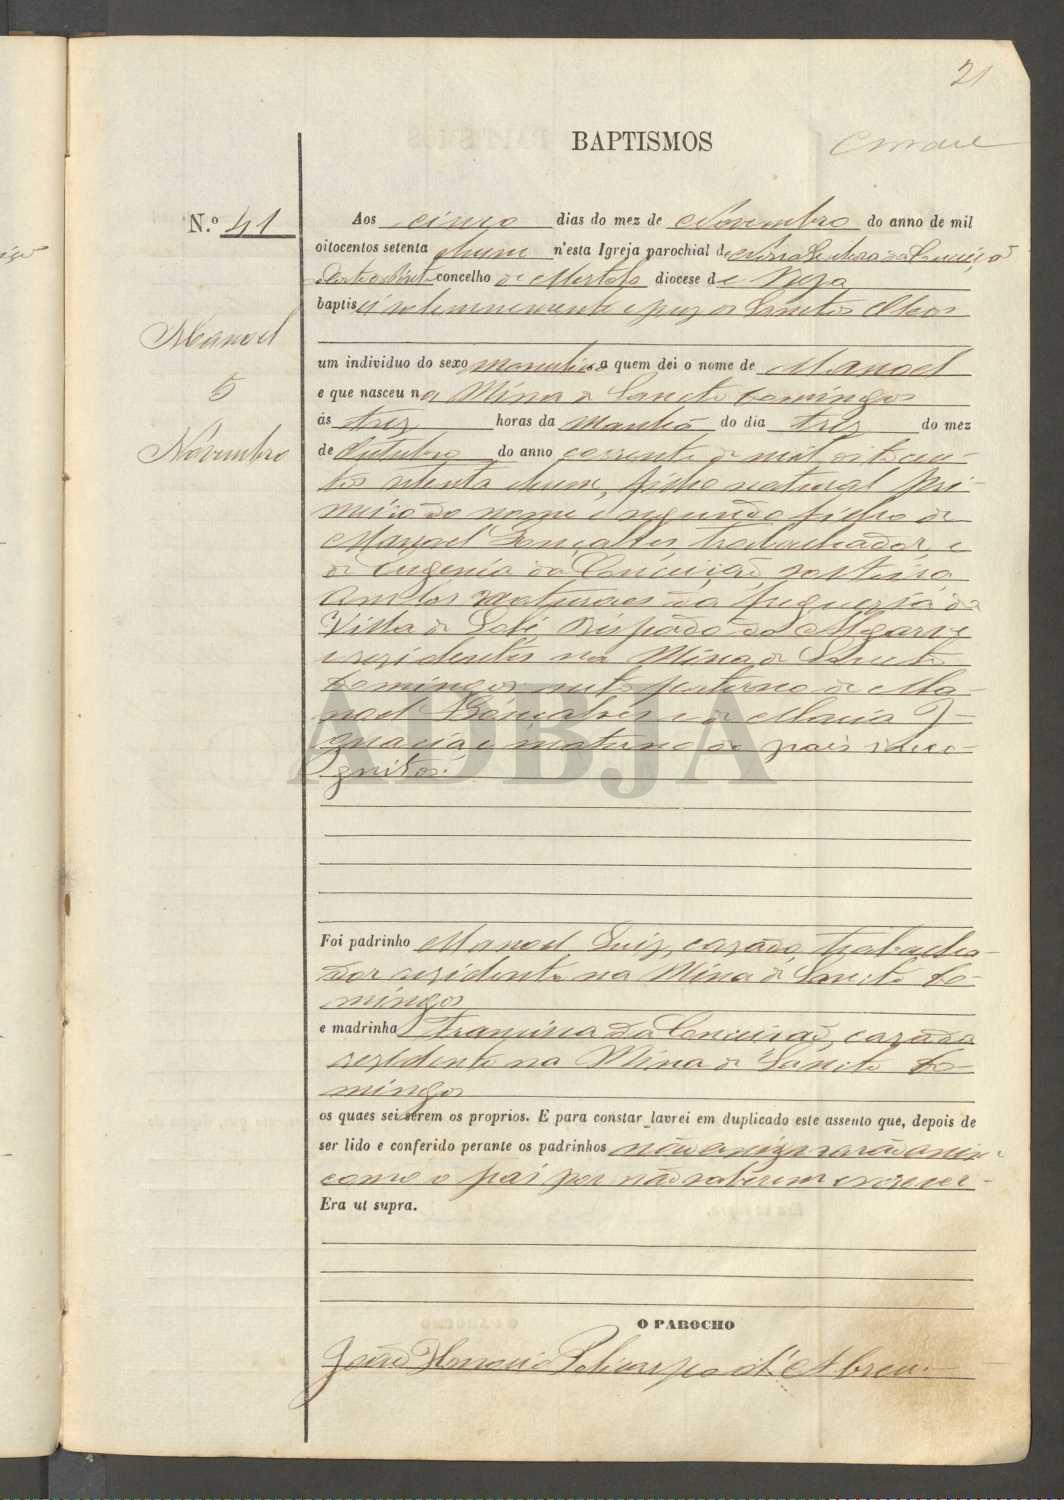 21
BAPTISMOS
N.º 41
Manoel
5
Novembro
Aos cinco dias do mez de Novembro do anno de mil
oitocentos setenta hum n'esta Igreja parochial de Nossa Senhora da Conceição
concelho de Mertola diocese de Beja
baptisei solemnemente e puz os Sanctos Oleos
um individuo do sexo masculino a quem dei o nome de Manoel
e que nasceu na Mina de Sancto Domingos
ás trez horas da Manhã do dia trez do mez
de Outubro do anno corrente de mil oitocen-
tos setenta hum, filho natural pri-
meiro do nome e segundo filho de
Manoel Gonçalves trabalhador, e
de Eugenia da Conceição, solteira
ambos naturaes da freguezia da
Villa de Loulé Bispado do Algarve
e rezidentes na Mina de Sancto
Domingos neto paterno de Ma-
noel Gonçalves e de Maria I-
gnacia e materno de pais inco-
gnitos.
ADBJA
Foi padrinho Manoel Luiz, cazado, trabalha-
dor rezidente na Mina de Sancto Do-
mingos
e madrinha Francisca da Conceição, cazada
rezidente na Mina de Sancto Do-
mingos
os quaes sei serem os proprios. E para constar lavrei em duplicado este assento que, depois de
ser lido e conferido perante os padrinhos não assignarão assim
como o pai por não saberem escrever.
Era ut supra.
O PAROCHO
João Policarpo d'Abreu